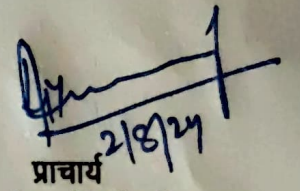 2/8/24
प्राचार्य